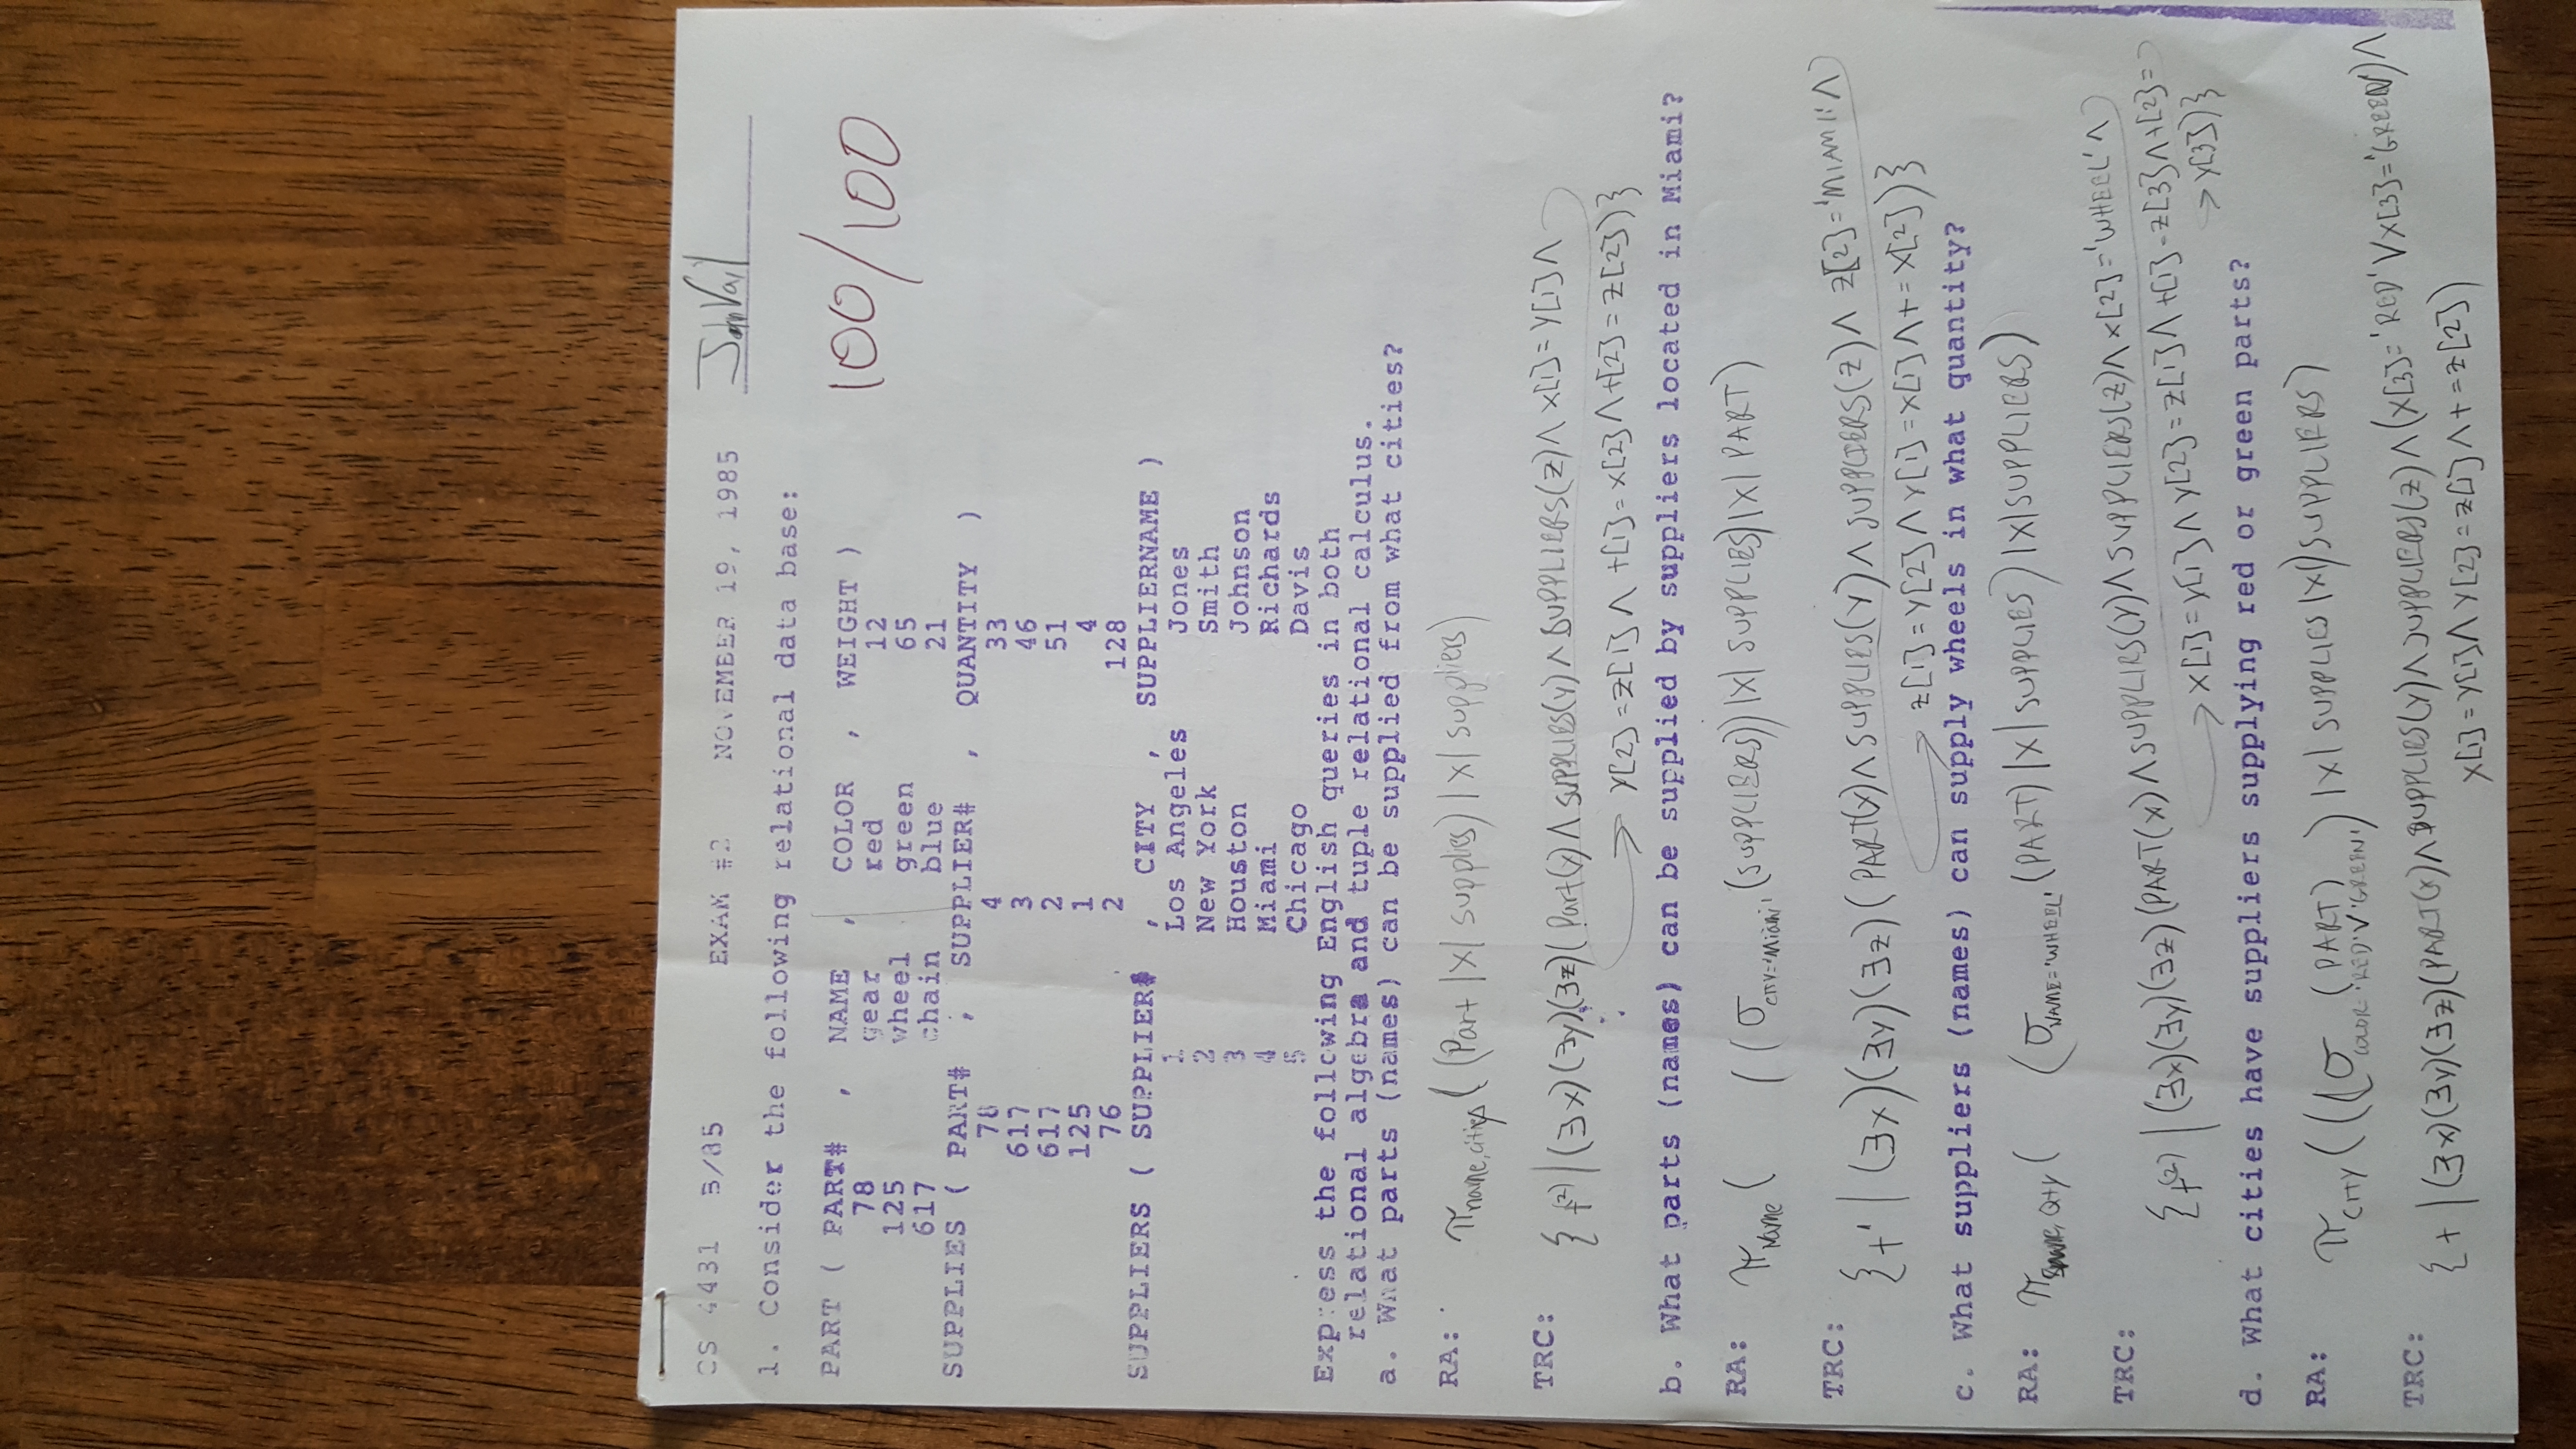 CS 4431 3/85 EXAM #2 NOVEMBER 19, 1985
100/100
1. Consider the following relational data base:
PART ( PART# , NAME , COLOR , WEIGHT )
78 gear red 12
125 wheel green 65
617 chain blue 21
SUPPLIES ( PART# , SUPPLIER# , QUANTITY )
78 4 33
617 3 46
617 2 51
125 1 4
76 2 128
SUPPLIERS ( SUPPLIER# , CITY , SUPPLIERNAME )
1 Los Angeles Jones
2 New York Smith
3 Houston Johnson
4 Miami Richards
5 Chicago Davis
Express the following English queries in both
relational algebra and tuple relational calculus.
a. What parts (names) can be supplied from what cities?
RA: π name, cities ((Part |X| supplies) |X| suppliers)
TRC: { t(2) | (∃x)(∃y)(∃z)(Part(x) ∧ SUPPLIES(y) ∧ SUPPLIERS(z) ∧ x[1] = y[1] ∧
→ y[2] = z[1] ∧ t[1] = x[2] ∧ t[2] = z[2])}
b. What parts (names) can be supplied by suppliers located in Miami?
RA: π NAME ( ( (σ CITY='MIAMI' (SUPPLIERS)) |X| SUPPLIES) |X| PART)
TRC: { t' | (∃x)(∃y)(∃z)(PART(x) ∧ SUPPLIES(y) ∧ SUPPLIERS(z) ∧ z[2] = 'MIAMI' ∧
→ z[1] = y[2] ∧ y[1] = x[1] ∧ t = x[2])}
c. What suppliers (names) can supply wheels in what quantity?
RA: π SNAME, QTY ( (σ NAME='WHEEL' (PART) |X| SUPPLIES) |X| SUPPLIERS)
TRC: { t(2) | (∃x)(∃y)(∃z)(PART(x) ∧ SUPPLIES(y) ∧ SUPPLIERS(z) ∧ x[2] = 'WHEEL' ∧
→ x[1] = y[1] ∧ y[2] = z[1] ∧ t[1] = z[3] ∧ t[2] =
→ y[3])}
d. What cities have suppliers supplying red or green parts?
RA: π CITY (((σ COLOR='RED' ∨ 'GREEN' (PART)) |X| SUPPLIES |X|) SUPPLIERS)
TRC: { t | (∃x)(∃y)(∃z)(PART(x) ∧ SUPPLIES(y) ∧ SUPPLIERS(z) ∧ (x[3] = 'RED' ∨ x[3] = 'GREEN') ∧
x[1] = y[1] ∧ y[2] = z[1] ∧ t = z[2])